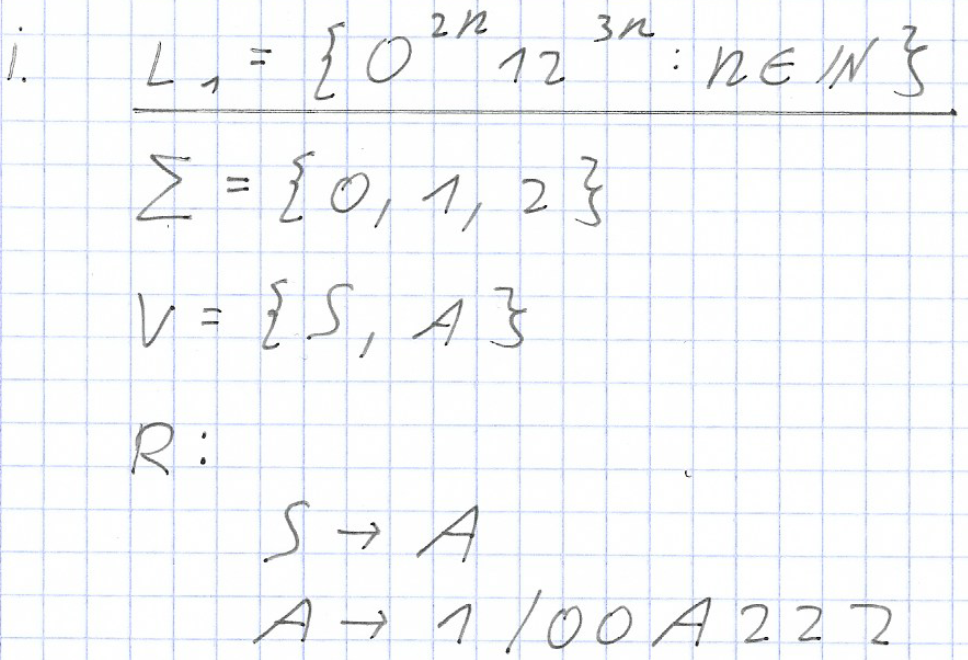 i. L₁ = {0²ⁿ 12³ⁿ : n ∈ ℕ}
Σ = {0, 1, 2}
V = {S, A}
R:
S → A
A → 1 / 00A222